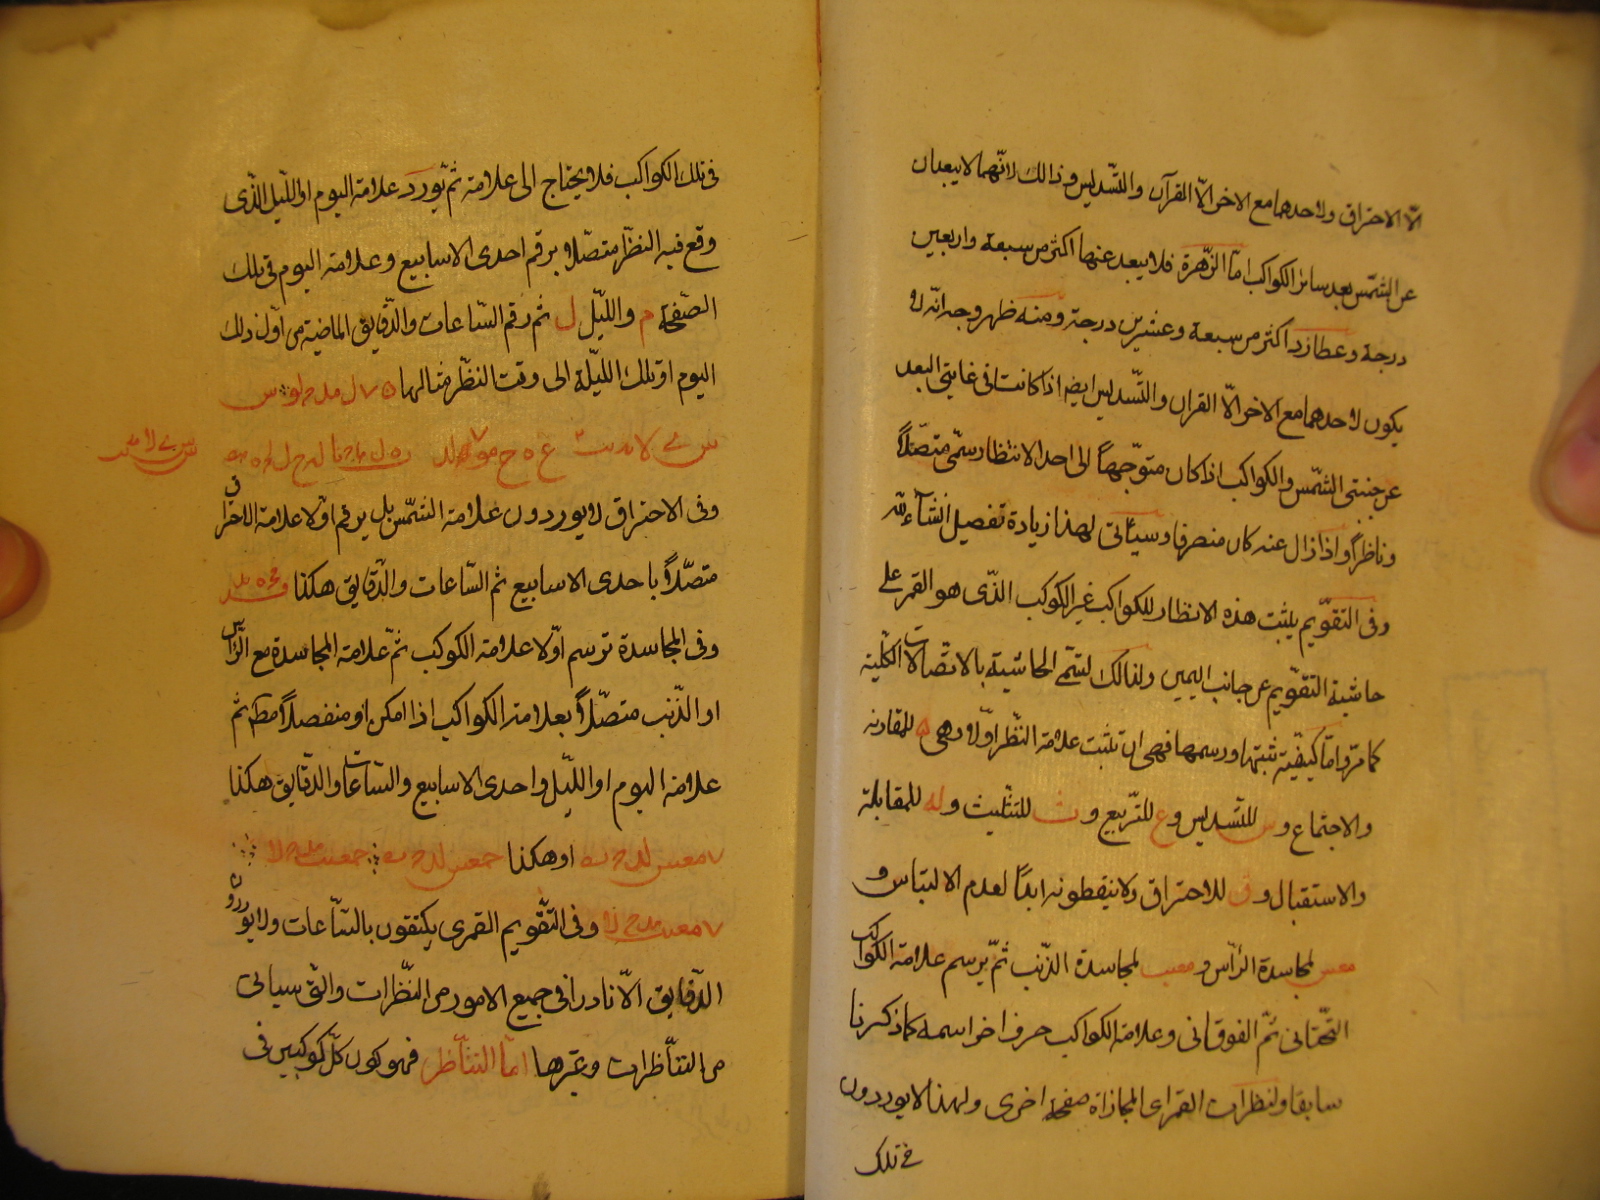 الّا الاحتراق ولاحدهما مع الاخر الّا القرآن والتّسديس وذالك لانّهما لايبعدان
عن الشّمس بعد سائر الكواكب امّا الزّهرة فلا يبعد عنها اكثر من سبعة واربعين
درجة وعطارد اكثر من سبعة وعشرين درجة ومنه ظهر وجه انّه لا
يكون لاحدهما مع الاخر الّا القران والتّسديس ايضا اذا كانت فى غايتى البعد
عن جنبتى الشّمس والكواكب اذا كان متوّجهاً الى احد الانتظار سمّى متصّلاً
وناظراً واذا زال عنه كان منصرفا وسيأتى لهذا زيادة تفصيل انشآء اللّه
وفى التقوّيم يثبت هذه الانظار للكواكب غير الكوكب الذّى هو القمر على
حاشية التقوّيم عن جانب اليمين ولذالك تسمّى الحاشية بالاتصّالات الكليّة
كما مرّ وامّا كيفيّة ثبتها ورسمها فهى ان تثبت علامة النّظر اوّلا وهى ه للمقارنه
والاجتماع و س للتّسديس و ع للتّربيع و ث للتثّليث و له للمقابلة
والاستقبال و ق للاحتراق ولاينقطونه ابدًا لعدم الالتباس و
معس لمجاسدة الرّأس و معب لمجاسدة الذّنب ثمّ يرسم علامة الكواكب
التّحتانى ثمّ الفوقانى وعلامة الكواكب حرف اخر اسمه كما ذكرنا
سابقا ولنظرات القمر اعى المجازاة صفحة اخرى ولهذا لايوردون
فى تلك
فى تلك الكواكب فلا يحتاج الى علامة ثمّ يورد علامة اليوم او اللّيل الذّى
وقع فيه النظّر متصّلا برقم احدى الاسابيع وعلامة اليوم فى تلك
الصّفحة م واللّيل ل ثم رقم السّاعات والدّقايق الماضية من اوّل ذلك
اليوم او تلك الليّلة الى وقت النظّر مثالها
وفى الاحتراق لايوردون علامة الشّمس بل يرقم اوّلا علامة الاحتراق
متصّلاً باحدى الاسابيع ثم السّاعات والدّقايق هكذا
وفى المجاسدة ترسم اوّلا علامة الكوكب ثمّ علامة المجاسدة مع الرّأس
او الذّنب متصّلاً بعلامة الكواكب اذا امكن او منفصلاً ثم
علامة اليوم او اللّيل واحدى الاسابيع والسّاعات والدقايق هكذا
او هكذا
وفى التقّويم القمرى يكتفون بالسّاعات ولايوردون
الدّقايق الّا نادرا فى جميع الامور من النظّرات والتى سياتى
من التناّظرات وغيرها امّا التناّظر فهو كون كلّ كوكبين فى